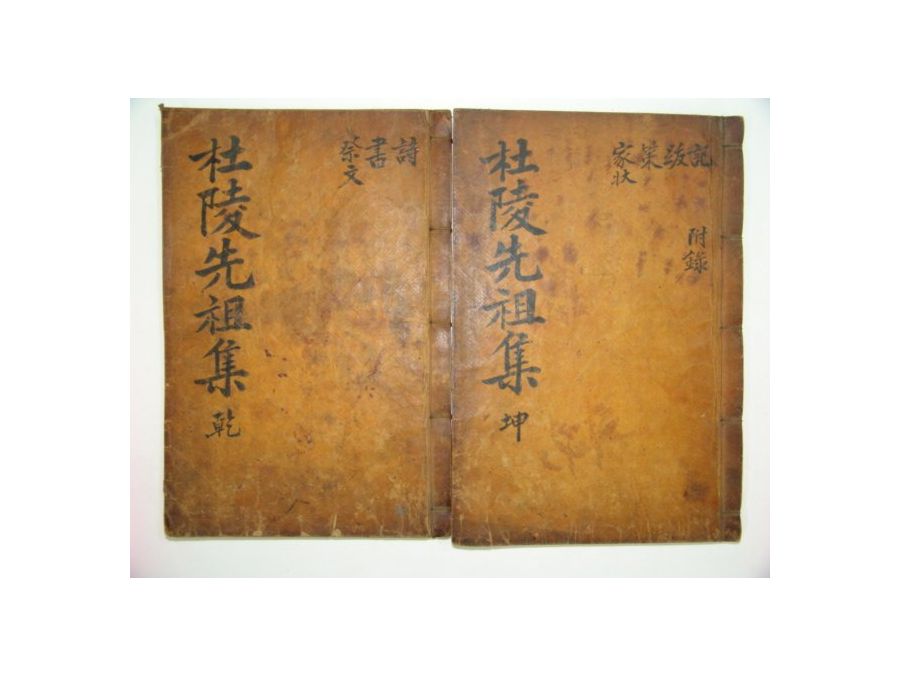 杜陵先祖集 乾
詩
書
祭文
杜陵先祖集 坤
記
跋
策
家狀
附錄